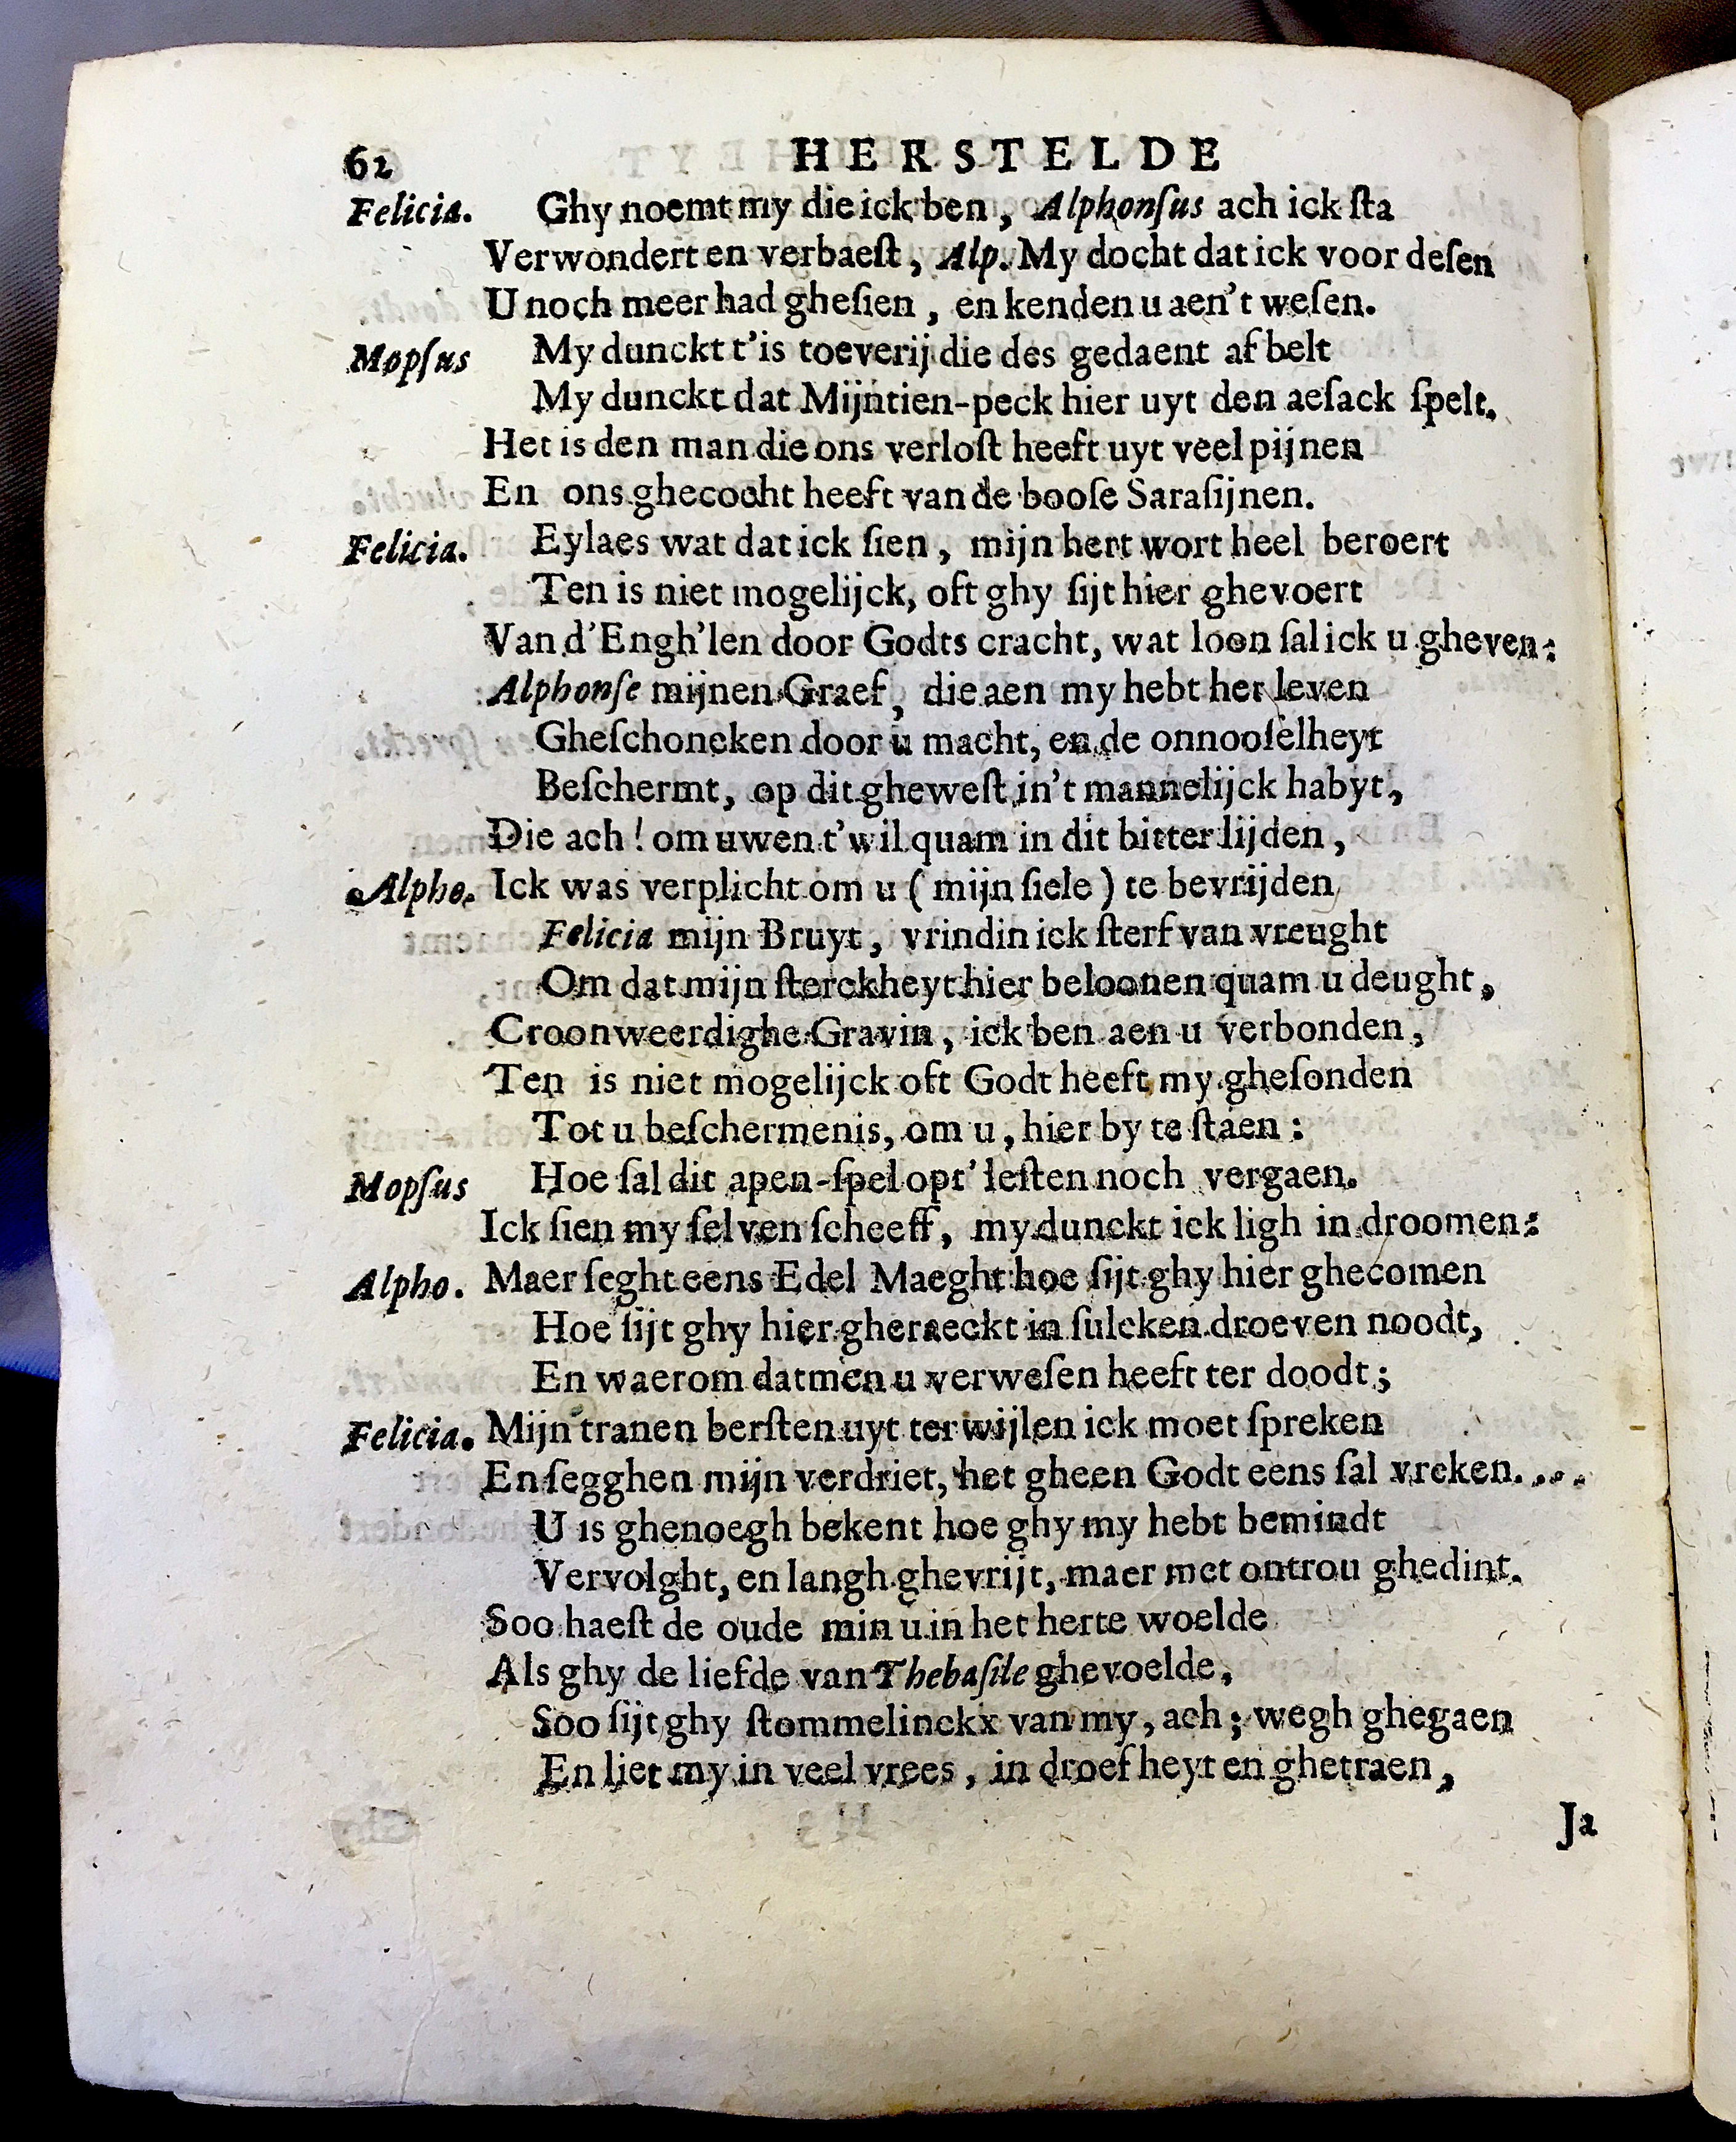 62 HERSTELDE
Felicia. Ghy noemt my die ick ben, Alphonſus ach ick ſta
Verwondert en verbaeſt, Alp. My docht dat ick voor deſen
U noch meer had gheſien, en kenden u aen't weſen.
Mopſus My dunckt t'is toeverij die des gedaent af belt
My dunckt dat Mijntien-peck hier uyt den aeſack ſpelt.
Het is den man die ons verloſt heeft uyt veel pijnen
En ons ghecocht heeft van de booſe Saraſijnen.
Felicia. Eylaes wat dat ick ſien, mijn hert wort heel beroert
Ten is niet mogelijck, oft ghy ſijt hier ghevoert
Van d'Engh'len door Godts cracht, wat loon ſal ick u gheven:
Alphonſe mijnen Graef, die aen my hebt het leven
Gheſchoncken door u macht, en de onnooſelheyt
Beſchermt, op dit gheweſt in't mannelijck habyt,
Die ach! om uwen t'wil quam in dit bitter lijden,
Alpho. Ick was verplicht om u (mijn ſiele) te bevrijden
Felicia mijn Bruyt, vrindin ick ſterf van vreught
Om dat mijn ſterckheyt hier beloonen quam u deught,
Croonweerdighe Gravin, ick ben aen u verbonden,
Ten is niet mogelijck oft Godt heeft my gheſonden
Tot u beſchermenis, om u, hier by te ſtaen:
Mopſus Hoe ſal dit apen-ſpel opt' leſten noch vergaen.
Ick ſien my ſelven ſcheeff, my dunckt ick ligh in droomen:
Alpho. Maer ſeght eens Edel Maeght hoe ſijt ghy hier ghecomen
Hoe ſijt ghy hier gheraeckt in ſulcken droeven noodt,
En waerom datmen u verweſen heeft ter doodt;
Felicia. Mijn tranen berſten uyt terwijlen ick moet ſpreken
En ſegghen mijn verdriet, het gheen Godt eens ſal vreken....
U is ghenoegh bekent hoe ghy my hebt bemindt
Vervolght, en langh ghevrijt, maer met ontrou ghedint.
Soo haeſt de oude min u in het herte woelde
Als ghy de liefde van Thebaſile ghevoelde,
Soo ſijt ghy ſtommelinckx van my, ach; wegh ghegaen
En liet my in veel vrees, in droef heyt en ghetraen,
Ja